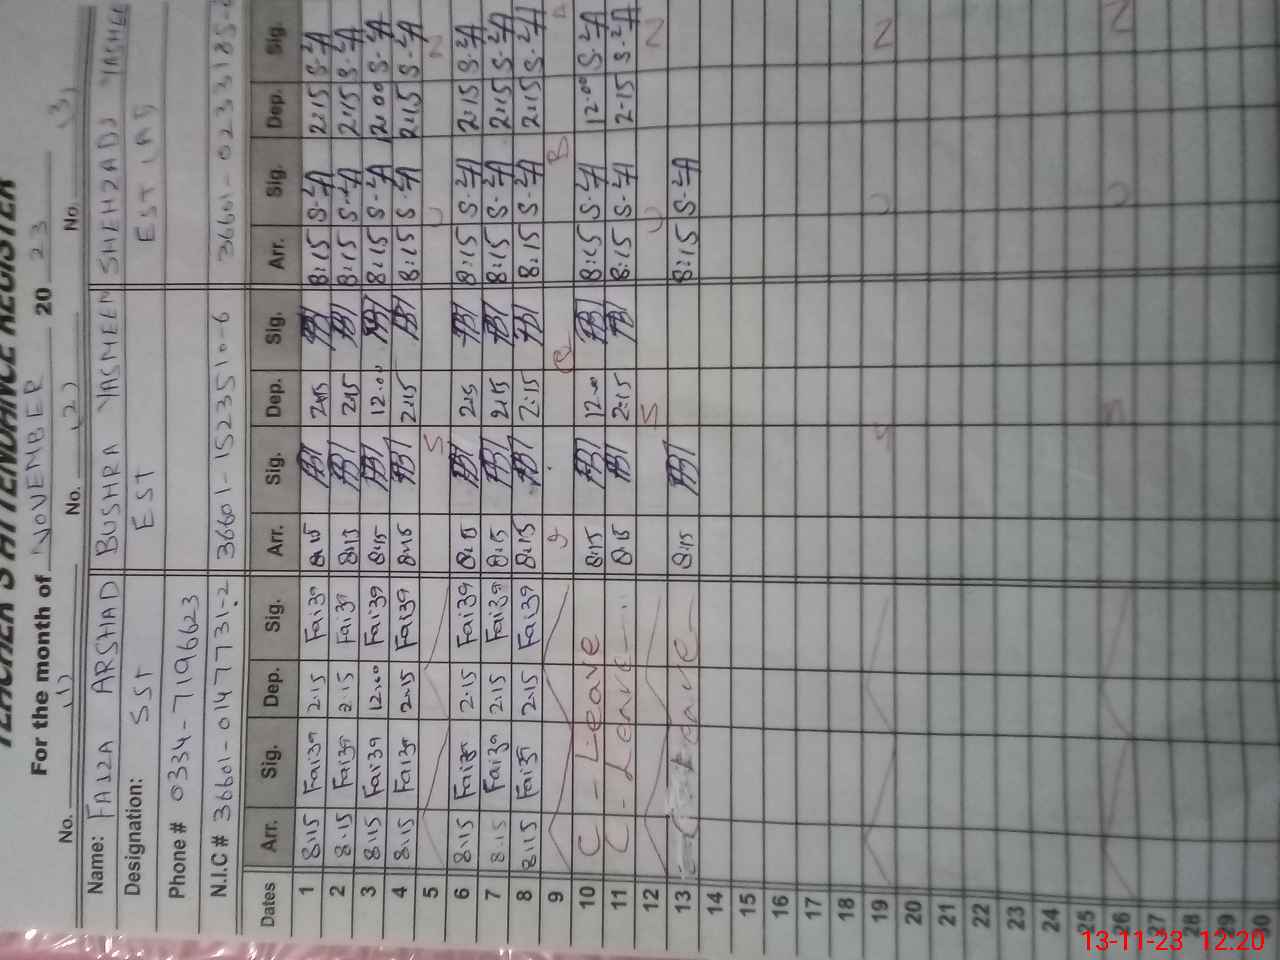 TEACHER'S ATTENDANCE REGISTER
For the month of NOVEMBER 20 23
No. (1) No. (2) No. (3)
Name: FAIZA ARSHAD BUSHRA YASMEEN SHEHZADI YASMEE
Designation: SST EST EST
Phone # 0334-7196623
N.I.C # 36601-0147731-2 36601-1523510-6 36601-0233185-
Dates Arr. Sig. Dep. Sig. Arr. Sig. Dep. Sig. Arr. Sig. Dep. Sig.
1 8:15 2:15 8:15 2:15 8:15 2:15
2 8:15 2:15 8:15 2:15 8:15 2:15
3 8:15 12:00 8:15 12:00 8:15 12:00
4 8:15 2:15 8:15 2:15 8:15 2:15
5 S U N
6 8:15 2:15 8:15 2:15 8:15 2:15
7 8:15 2:15 8:15 2:15 8:15 2:15
8 8:15 2:15 8:15 2:15 8:15 2:15
9
10 C - Leave 8:15 12:00 8:15 12:00
11 C - Leave 8:15 2:15 8:15 2:15
12 S U N
13 Leave 8:15 8:15
14
15
16
17
18
19 S U N
20
21
22
23
24
25
26 S U N
27
28
29
30
13-11-23 12:20